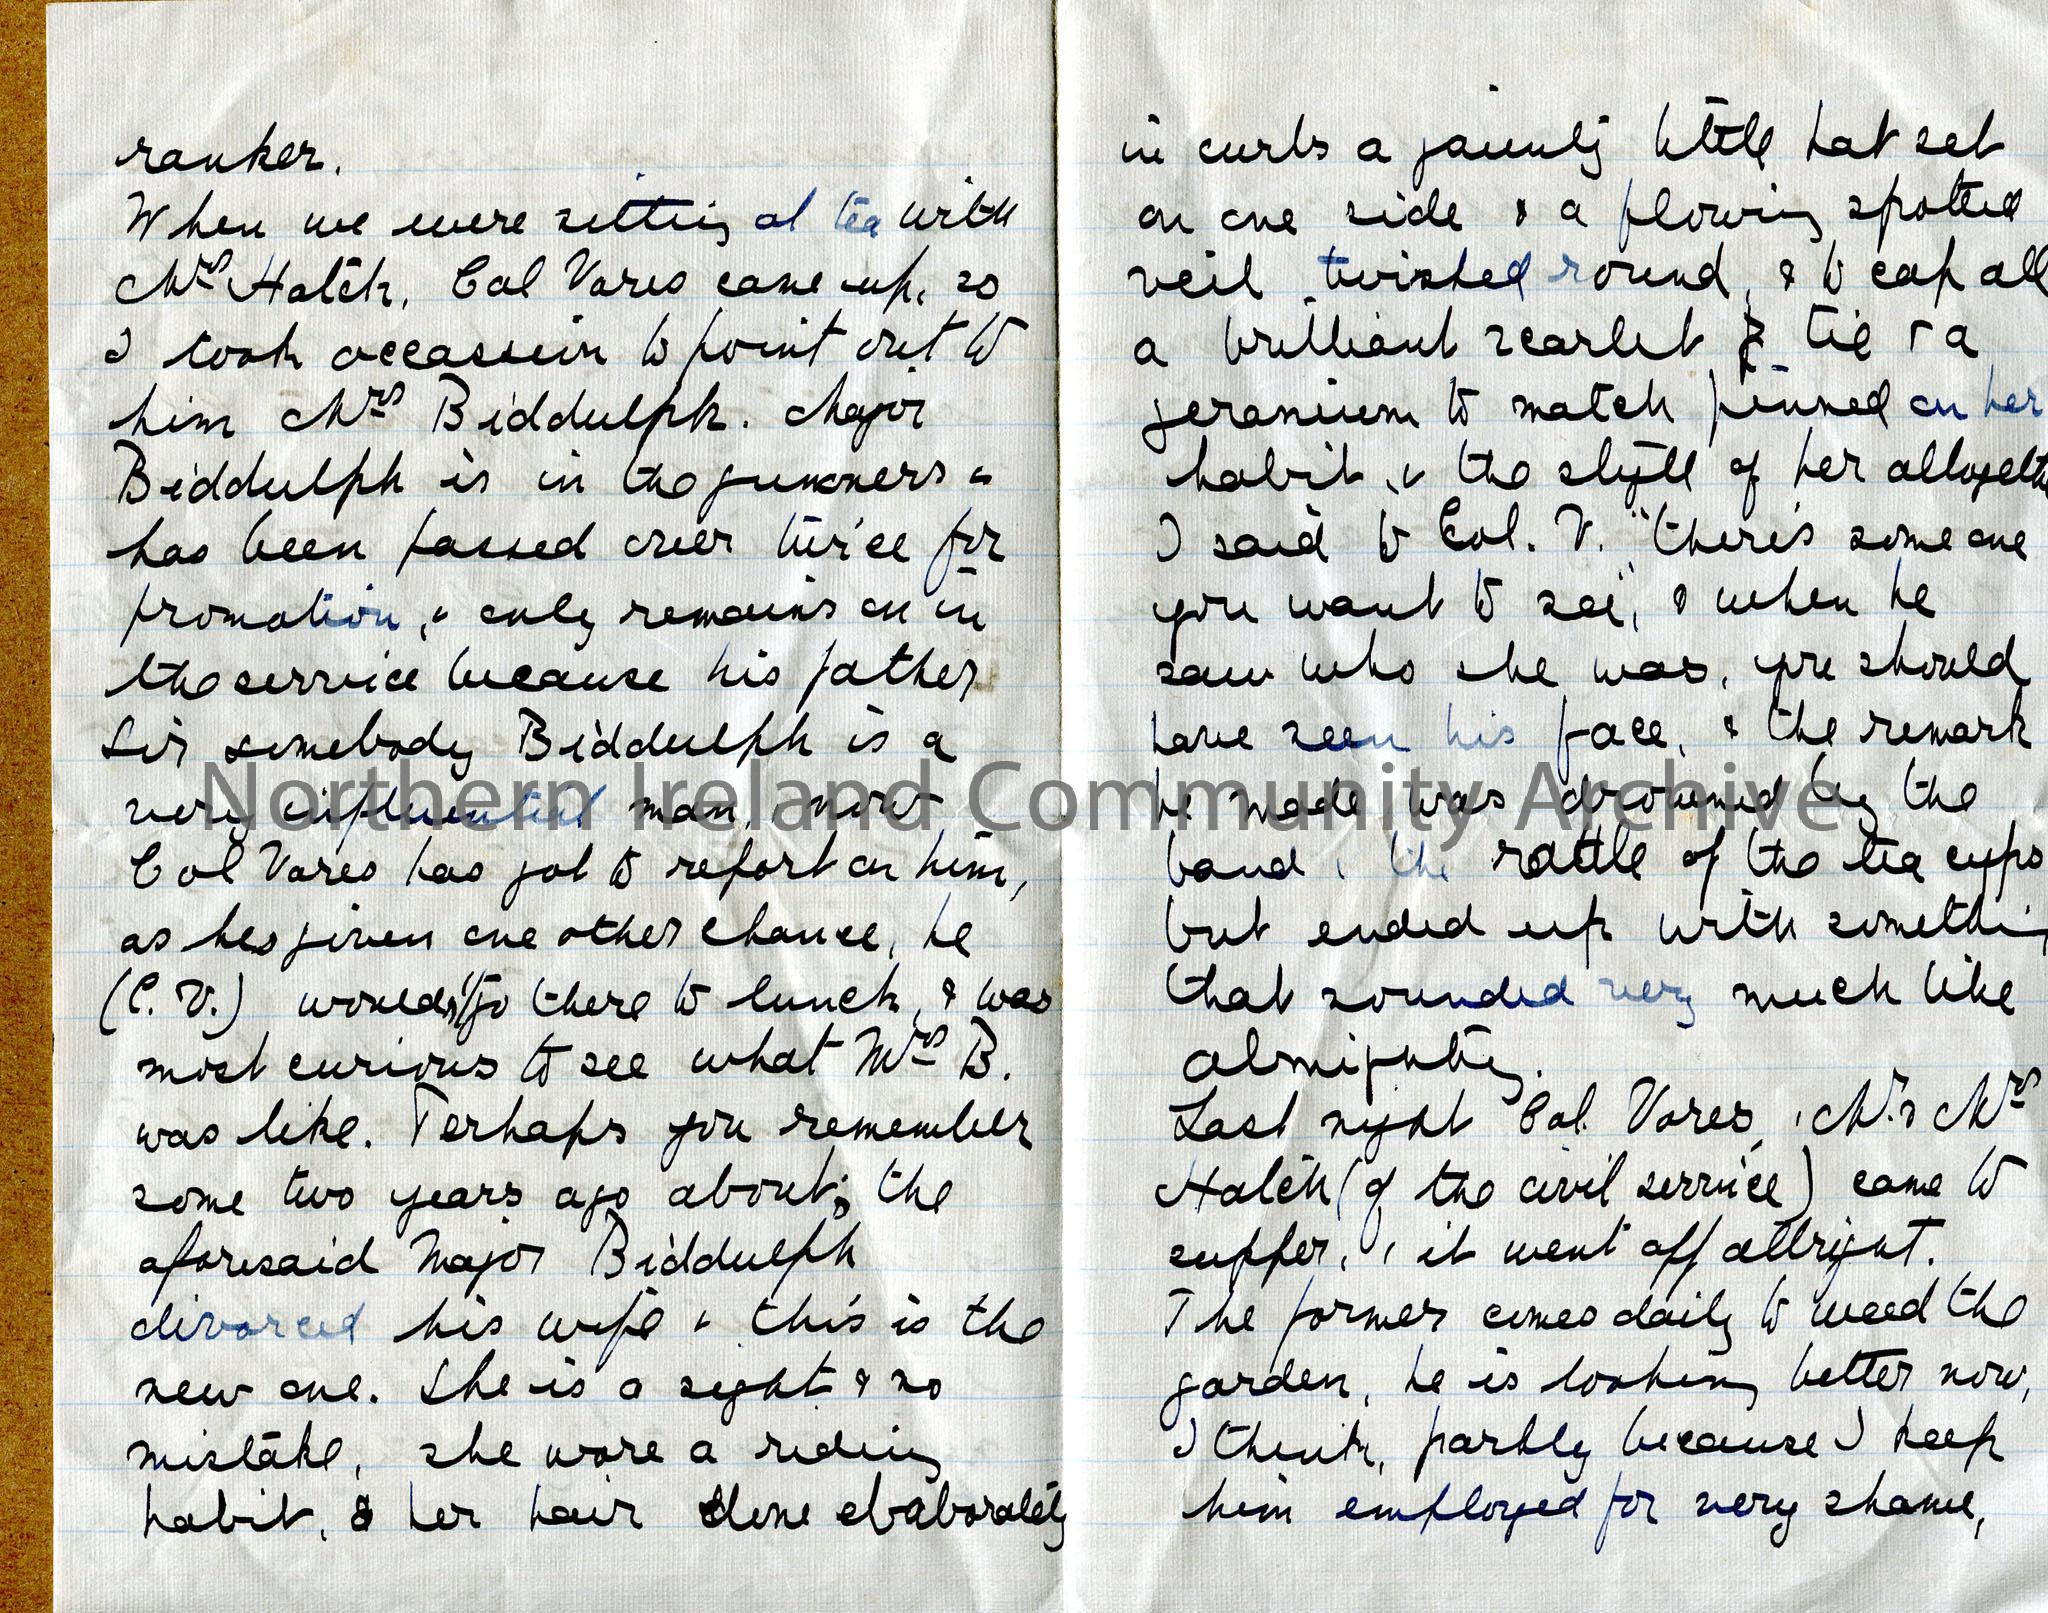 ranker.
When we were sitting at tea with
Mrs Hatch, Col Vares came up, so
I took occassion to point out to
him Mrs Biddulph. Major
Biddulph is in the gunners &
has been passed over twice for
promotion, & only remains on in
the service because his father
Sir somebody Biddulph is a
very influential man, now
Col Vares has got to report on him,
as hes given one other chance, he
(C.V.) would go there to lunch, & was
most curious to see what Mrs B.
was like. Perhaps you remember
some two years ago about, the
aforesaid Major Biddulph
divorced his wife & this is the
new one. She is a sight & no
mistake, she wore a riding
habit, & her hair done elaborately
in curls a jaunty little hat set
on one side & a flowing spotted
veil twisted round, & to cap all
a brilliant scarlet tie & a
geranium to match pinned on her
habit, & the style of her altogether
I said to Col. V. "there's some one
you want to see", & when he
saw who she was, you should
have seen his face, & the remark
he made was drowned by the
band, the rattle of the tea cups
but ended up with something
that sounded very much like
almighty.
Last night Col. Vares, Mr & Mrs
Hatch (of the civil service) came to
supper, & it went off allright.
The former comes daily to weed the
garden, he is looking better now,
I think, partly because I keep
him employed for very shame,
Northern Ireland Community Archive